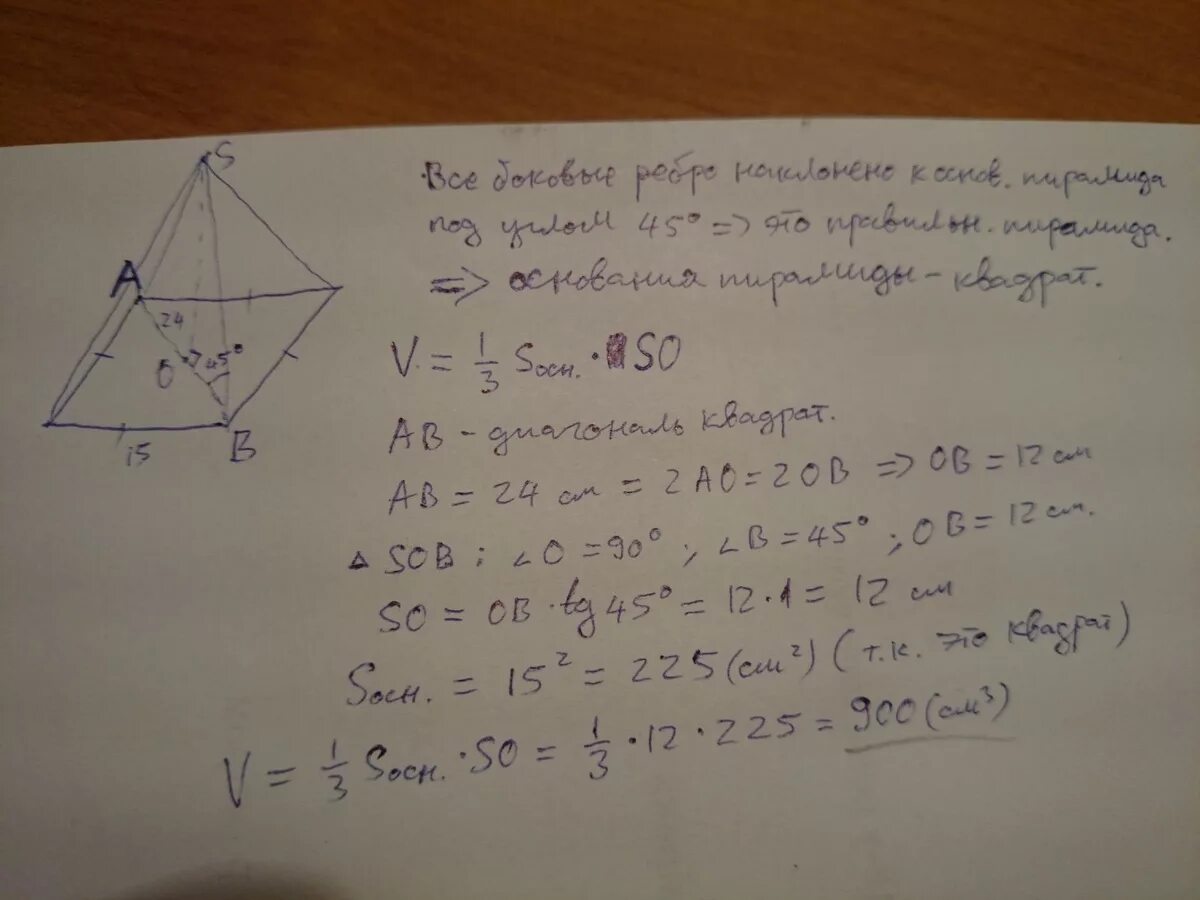 S
A
24
O
45°
B
15
Все боковые ребро наклонено к основ. пирамида
под углом 45° => это правилон. пирамида.
=> основания пирамиды - квадрат.
V = 1/3 Sосн. · SO
AB - диагональ квадрат.
AB = 24 см = 2AO = 2OB => OB = 12 см
△ SOB ; ∠O = 90° ; ∠B = 45° ; OB = 12 см.
SO = OB · tg 45° = 12 · 1 = 12 см
Sосн. = 15² = 225 (см²) (т.к. это квадрат)
V = 1/3 Sосн. · SO = 1/3 · 12 · 225 = 900 (см³)